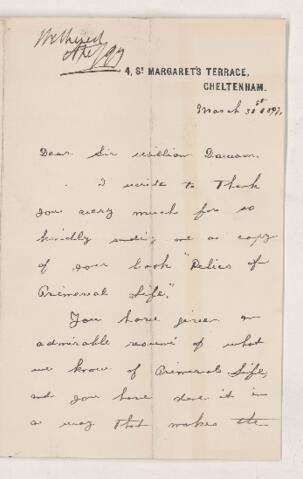 Wethered
4, St MARGARET'S TERRACE,
CHELTENHAM.
March 31st 1897.
Dear Sir William Dawson.
I write to Thank
you very much for so
kindly sending me a copy
of your book "Relics of
Primeval Life."
You have given an
admirable resumé of what
we know of Primeval Life,
and you have done it in
a way That makes the